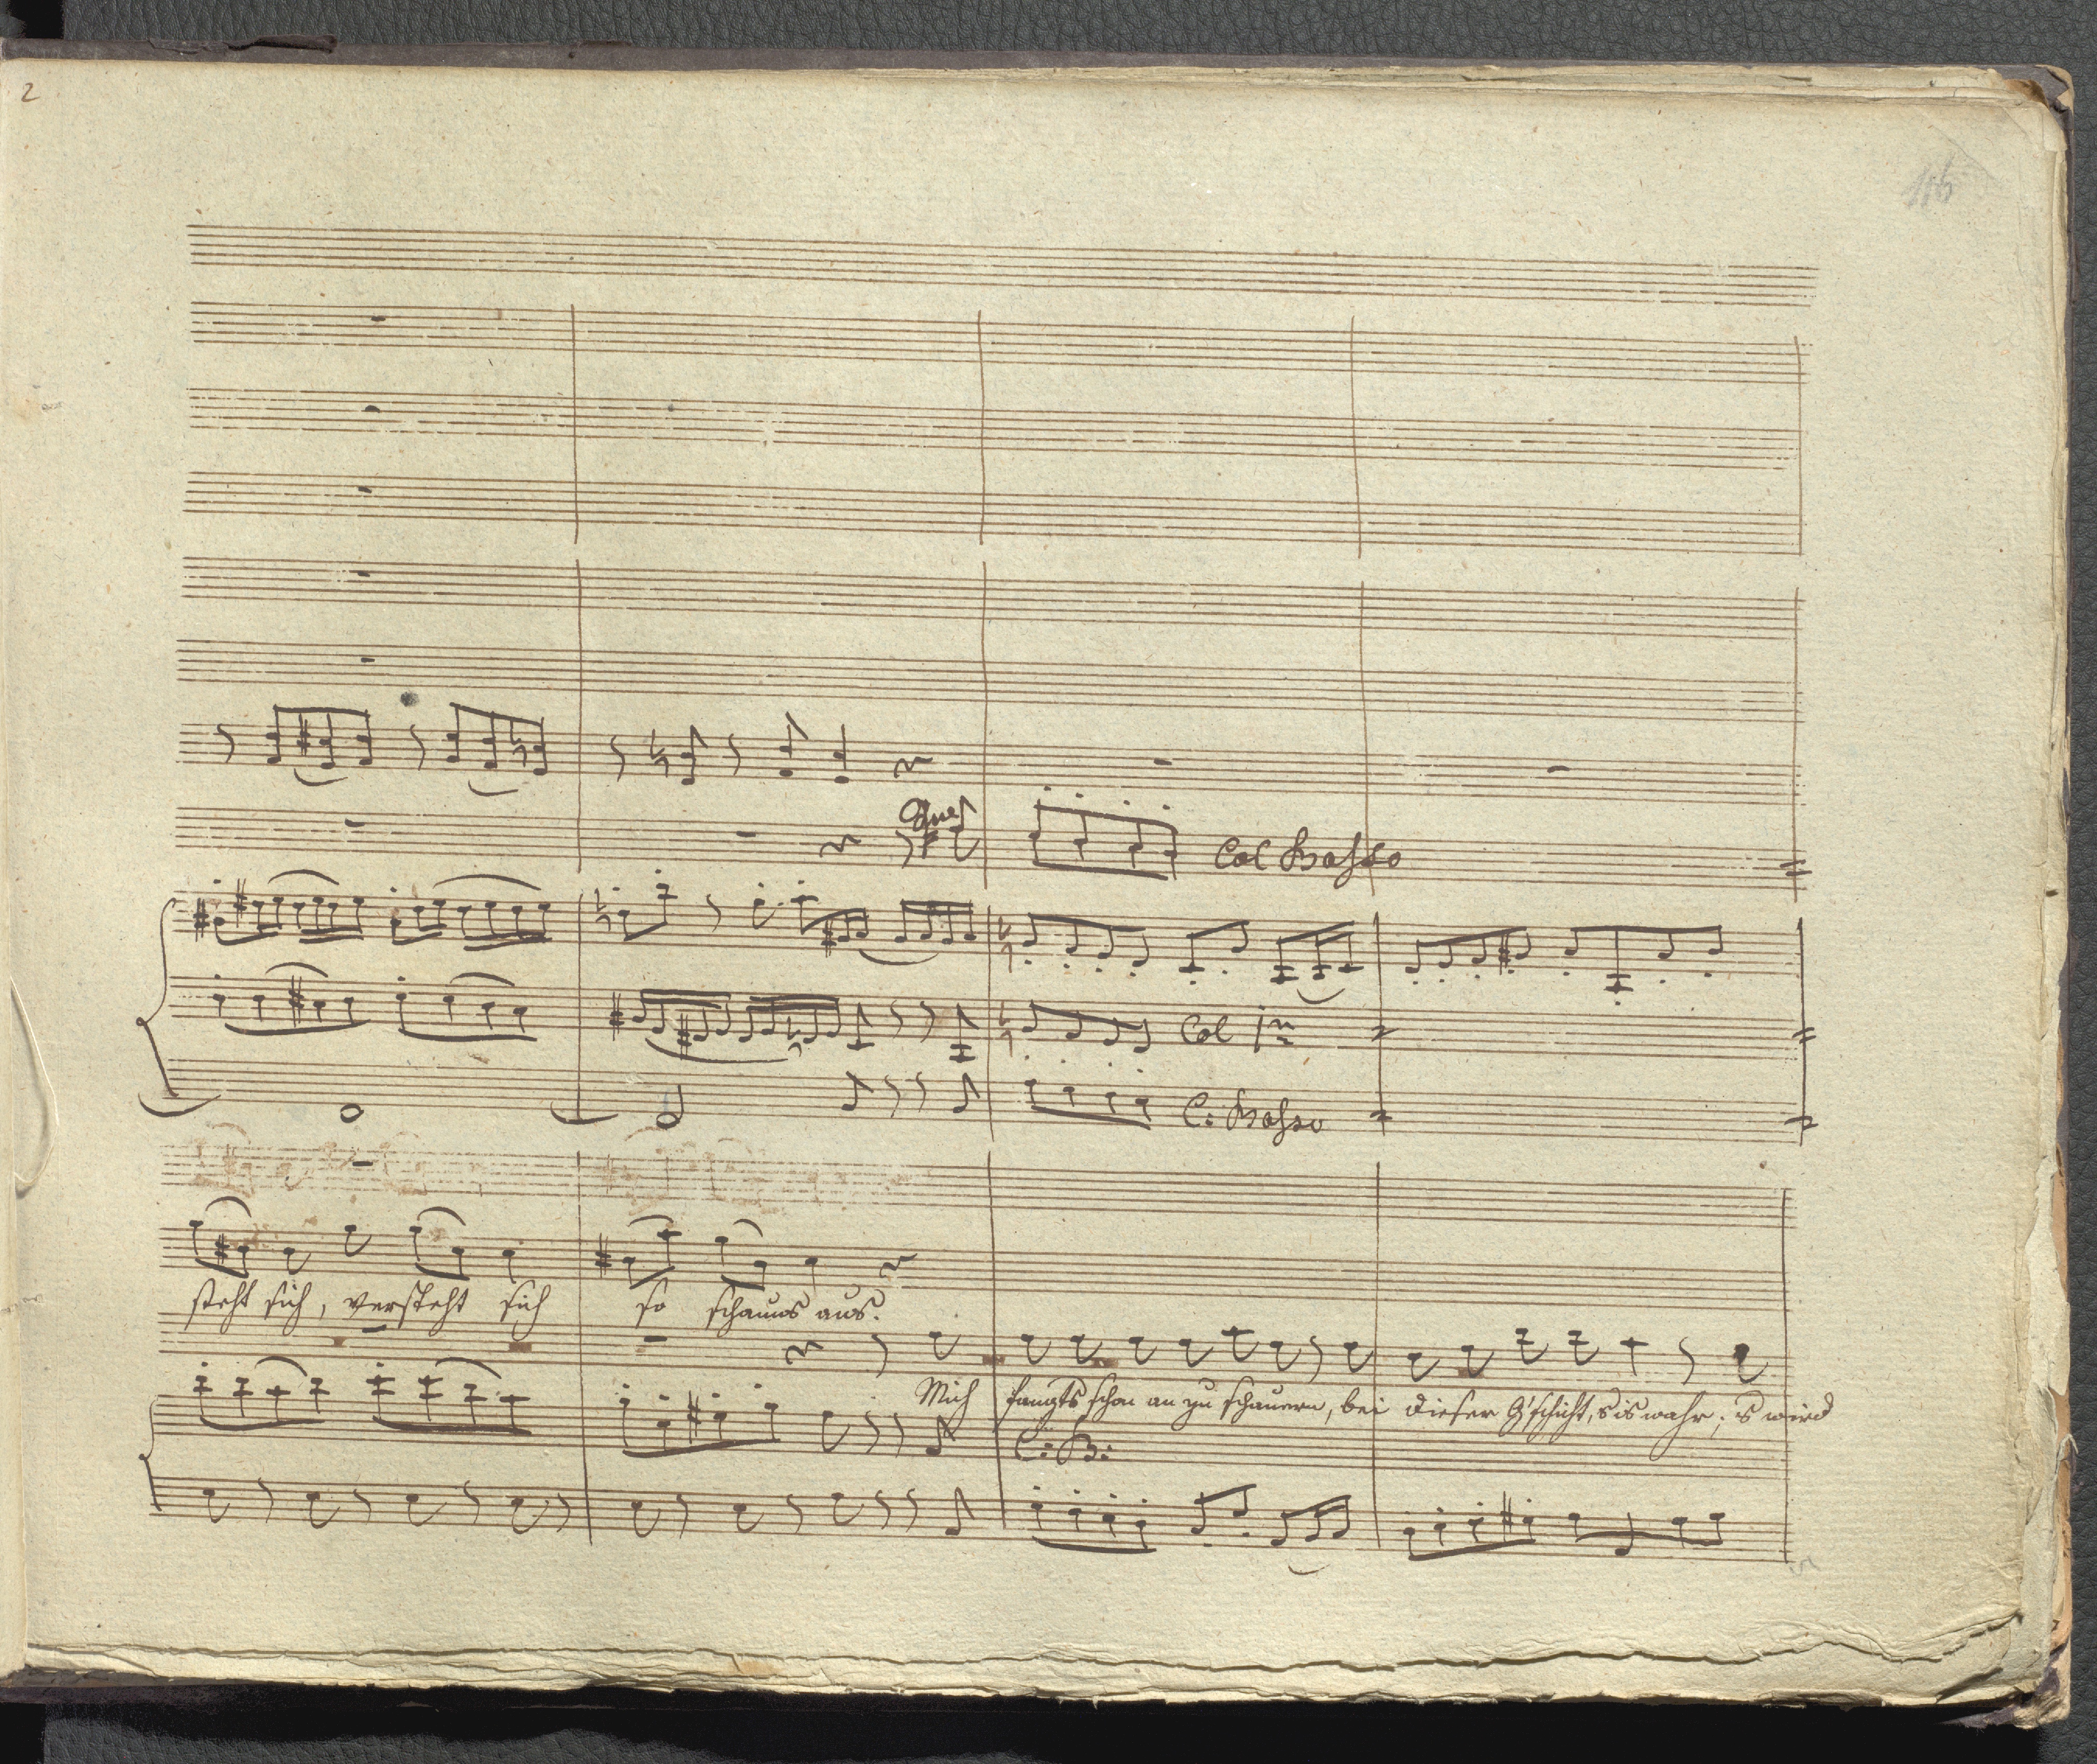 2
116
Col Basso
Col 1mo
C: Basso
steht sich, versteht sich so schauts aus.
Mich fangts schon an zu schauern, bei dieser G'schicht, s is wahr; s wird
C: B: